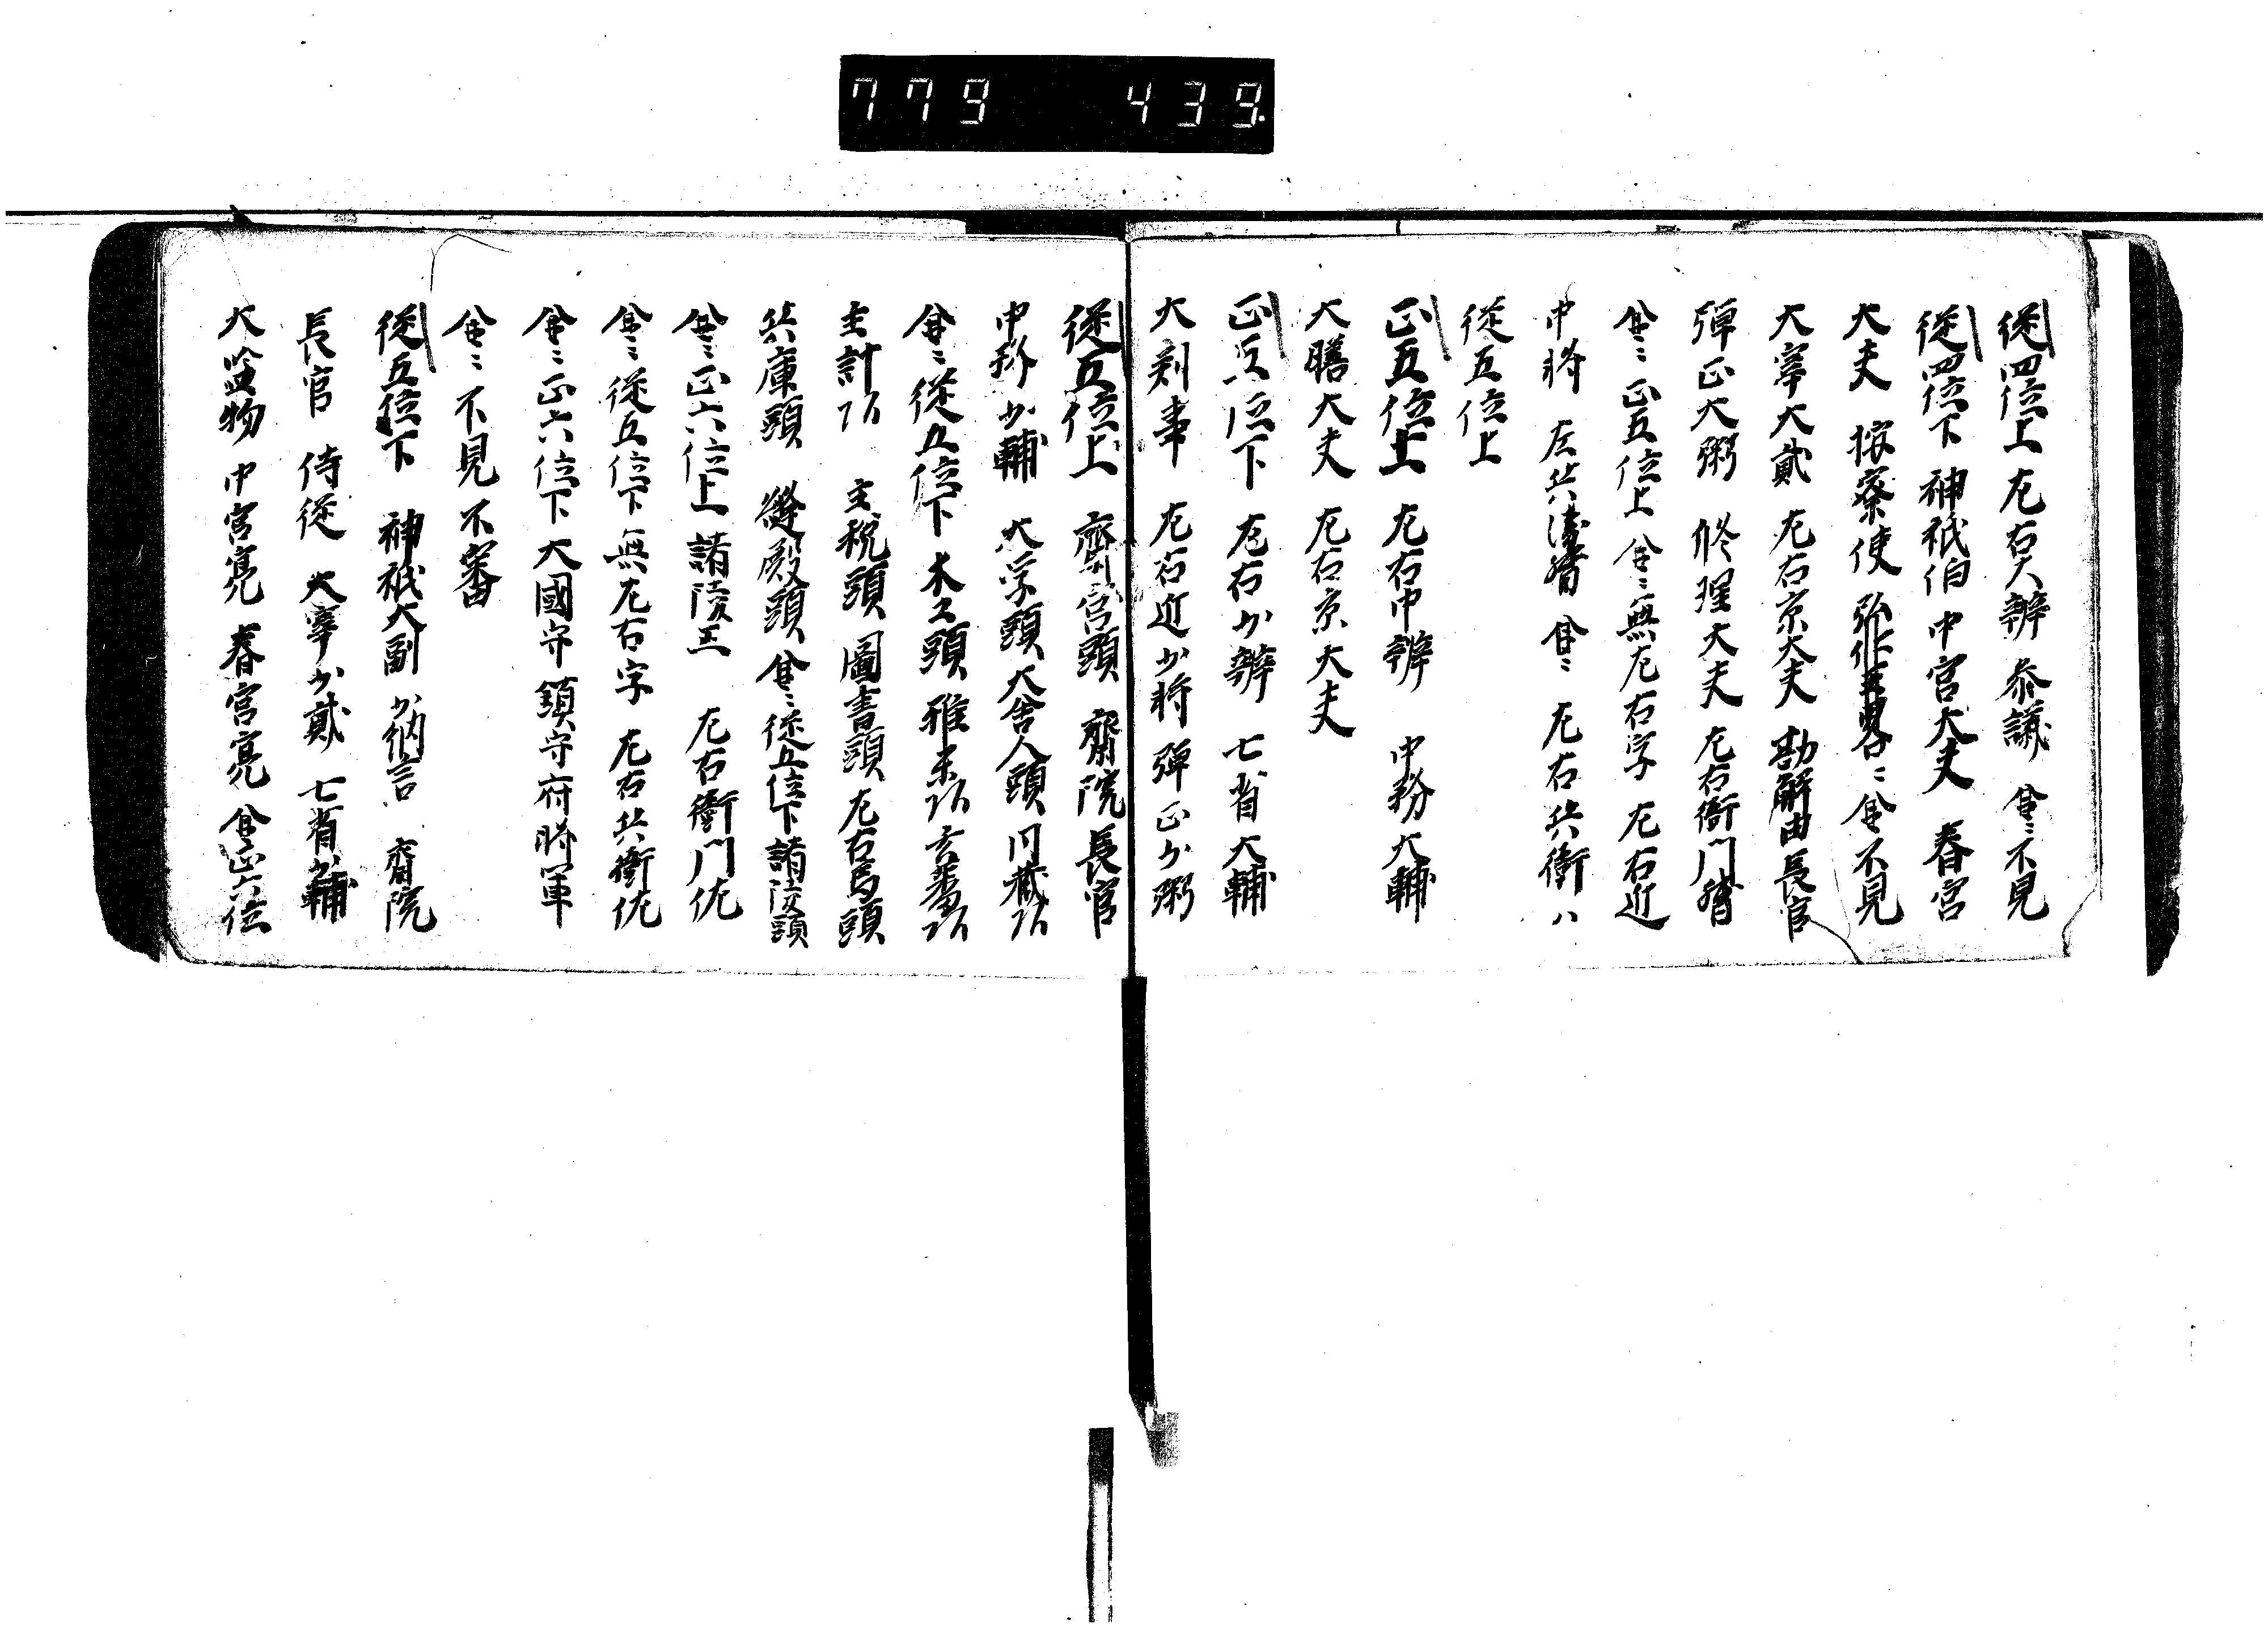 779 439.
従四位上 左右大辨 参議 令ニ不見
従四位下 神祇伯 中宮大夫 春宮
大夫 按察使 令不見
大宰大貳 左右京大夫 勘解由長官
弾正大弼 修理大夫 左右衛門督
令ニ正五位上 令ニ無左右字 左右近
中将 左兵衛督 令ニ 左右兵衛ハ
従五位上
正五位上 左右中辨 中務大輔
大膳大夫 左右京大夫
正五位下 左右少辨 七省大輔
大判事 左右近少将 弾正少弼
従五位上 齊宮頭 齋院長官
中務少輔 大学頭 大舎人頭 内蔵頭
令ニ従五位下 木工頭 雅楽頭 玄蕃頭
主計頭 主税頭 圖書頭 左右馬頭
兵庫頭 縫殿頭 令ニ従五位下 諸陵頭
令ニ正六位上 諸陵正 左右衛門佐
令ニ従五位下 無左右字 左右兵衛佐
令ニ正六位下 大國守 鎮守府将軍
令ニ不見不審
従五位下 神祇大副 少納言 齋院
長官 侍従 大宰少貳 七省少輔
大監物 中宮亮 春宮亮 令正六位